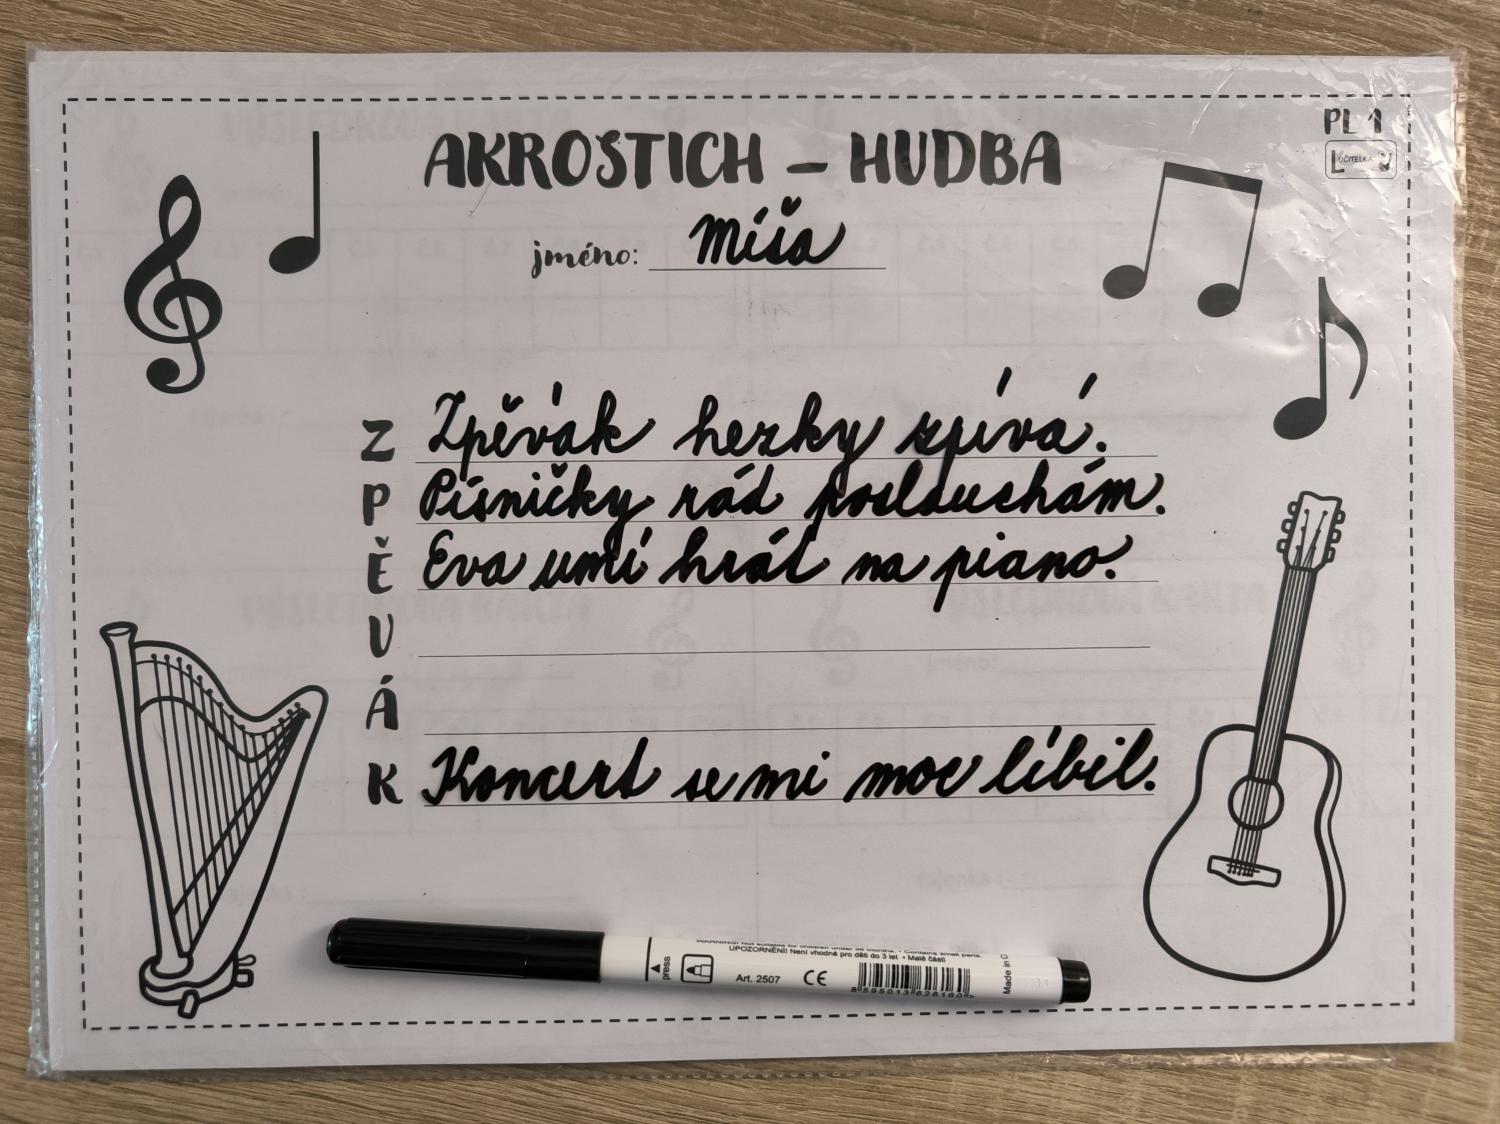 AKROSTICH – HUDBA
PL 1
UČITELKA
jméno: Míša
Z Zpěvák hezky zpívá.
P Písničky rád poslouchám.
Ě Eva umí hrát na piano.
V
Á
K Koncert se mi moc líbil.
press
WARNING! Not suitable for children under 36 months. • Contains small parts.
UPOZORNĚNÍ! Není vhodné pro děti do 3 let • Malé části
Art. 2507
CE
8 595013 626160
Made in C